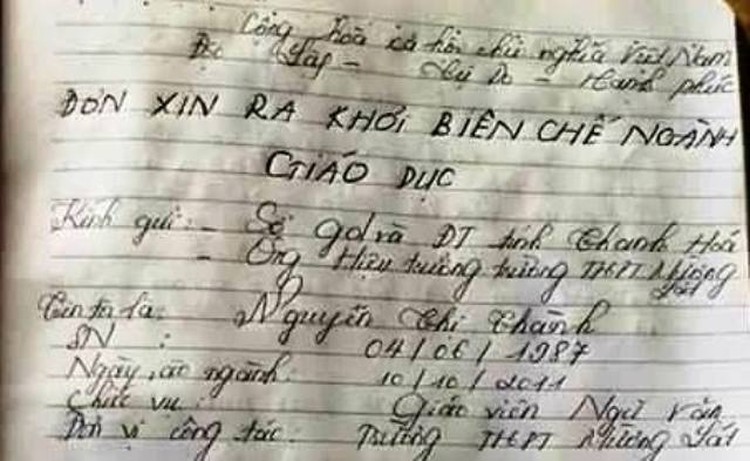 Cộng hoà xã hội chủ nghĩa Việt Nam
Độc lập - Tự Do - Hạnh phúc
ĐƠN XIN RA KHỎI BIÊN CHẾ NGÀNH
GIÁO DỤC
Kính gửi: - Sở gd và ĐT tỉnh Thanh Hoá
- Ông Hiệu trưởng trường THPT Mường Lát
Tên ta là: Nguyễn Thị Thành
SN : 04/06/1987
Ngày vào ngành: 10/10/2011
Chức vụ: Giáo viên Ngữ văn
Đơn vị công tác: Trường THPT Mường Lát